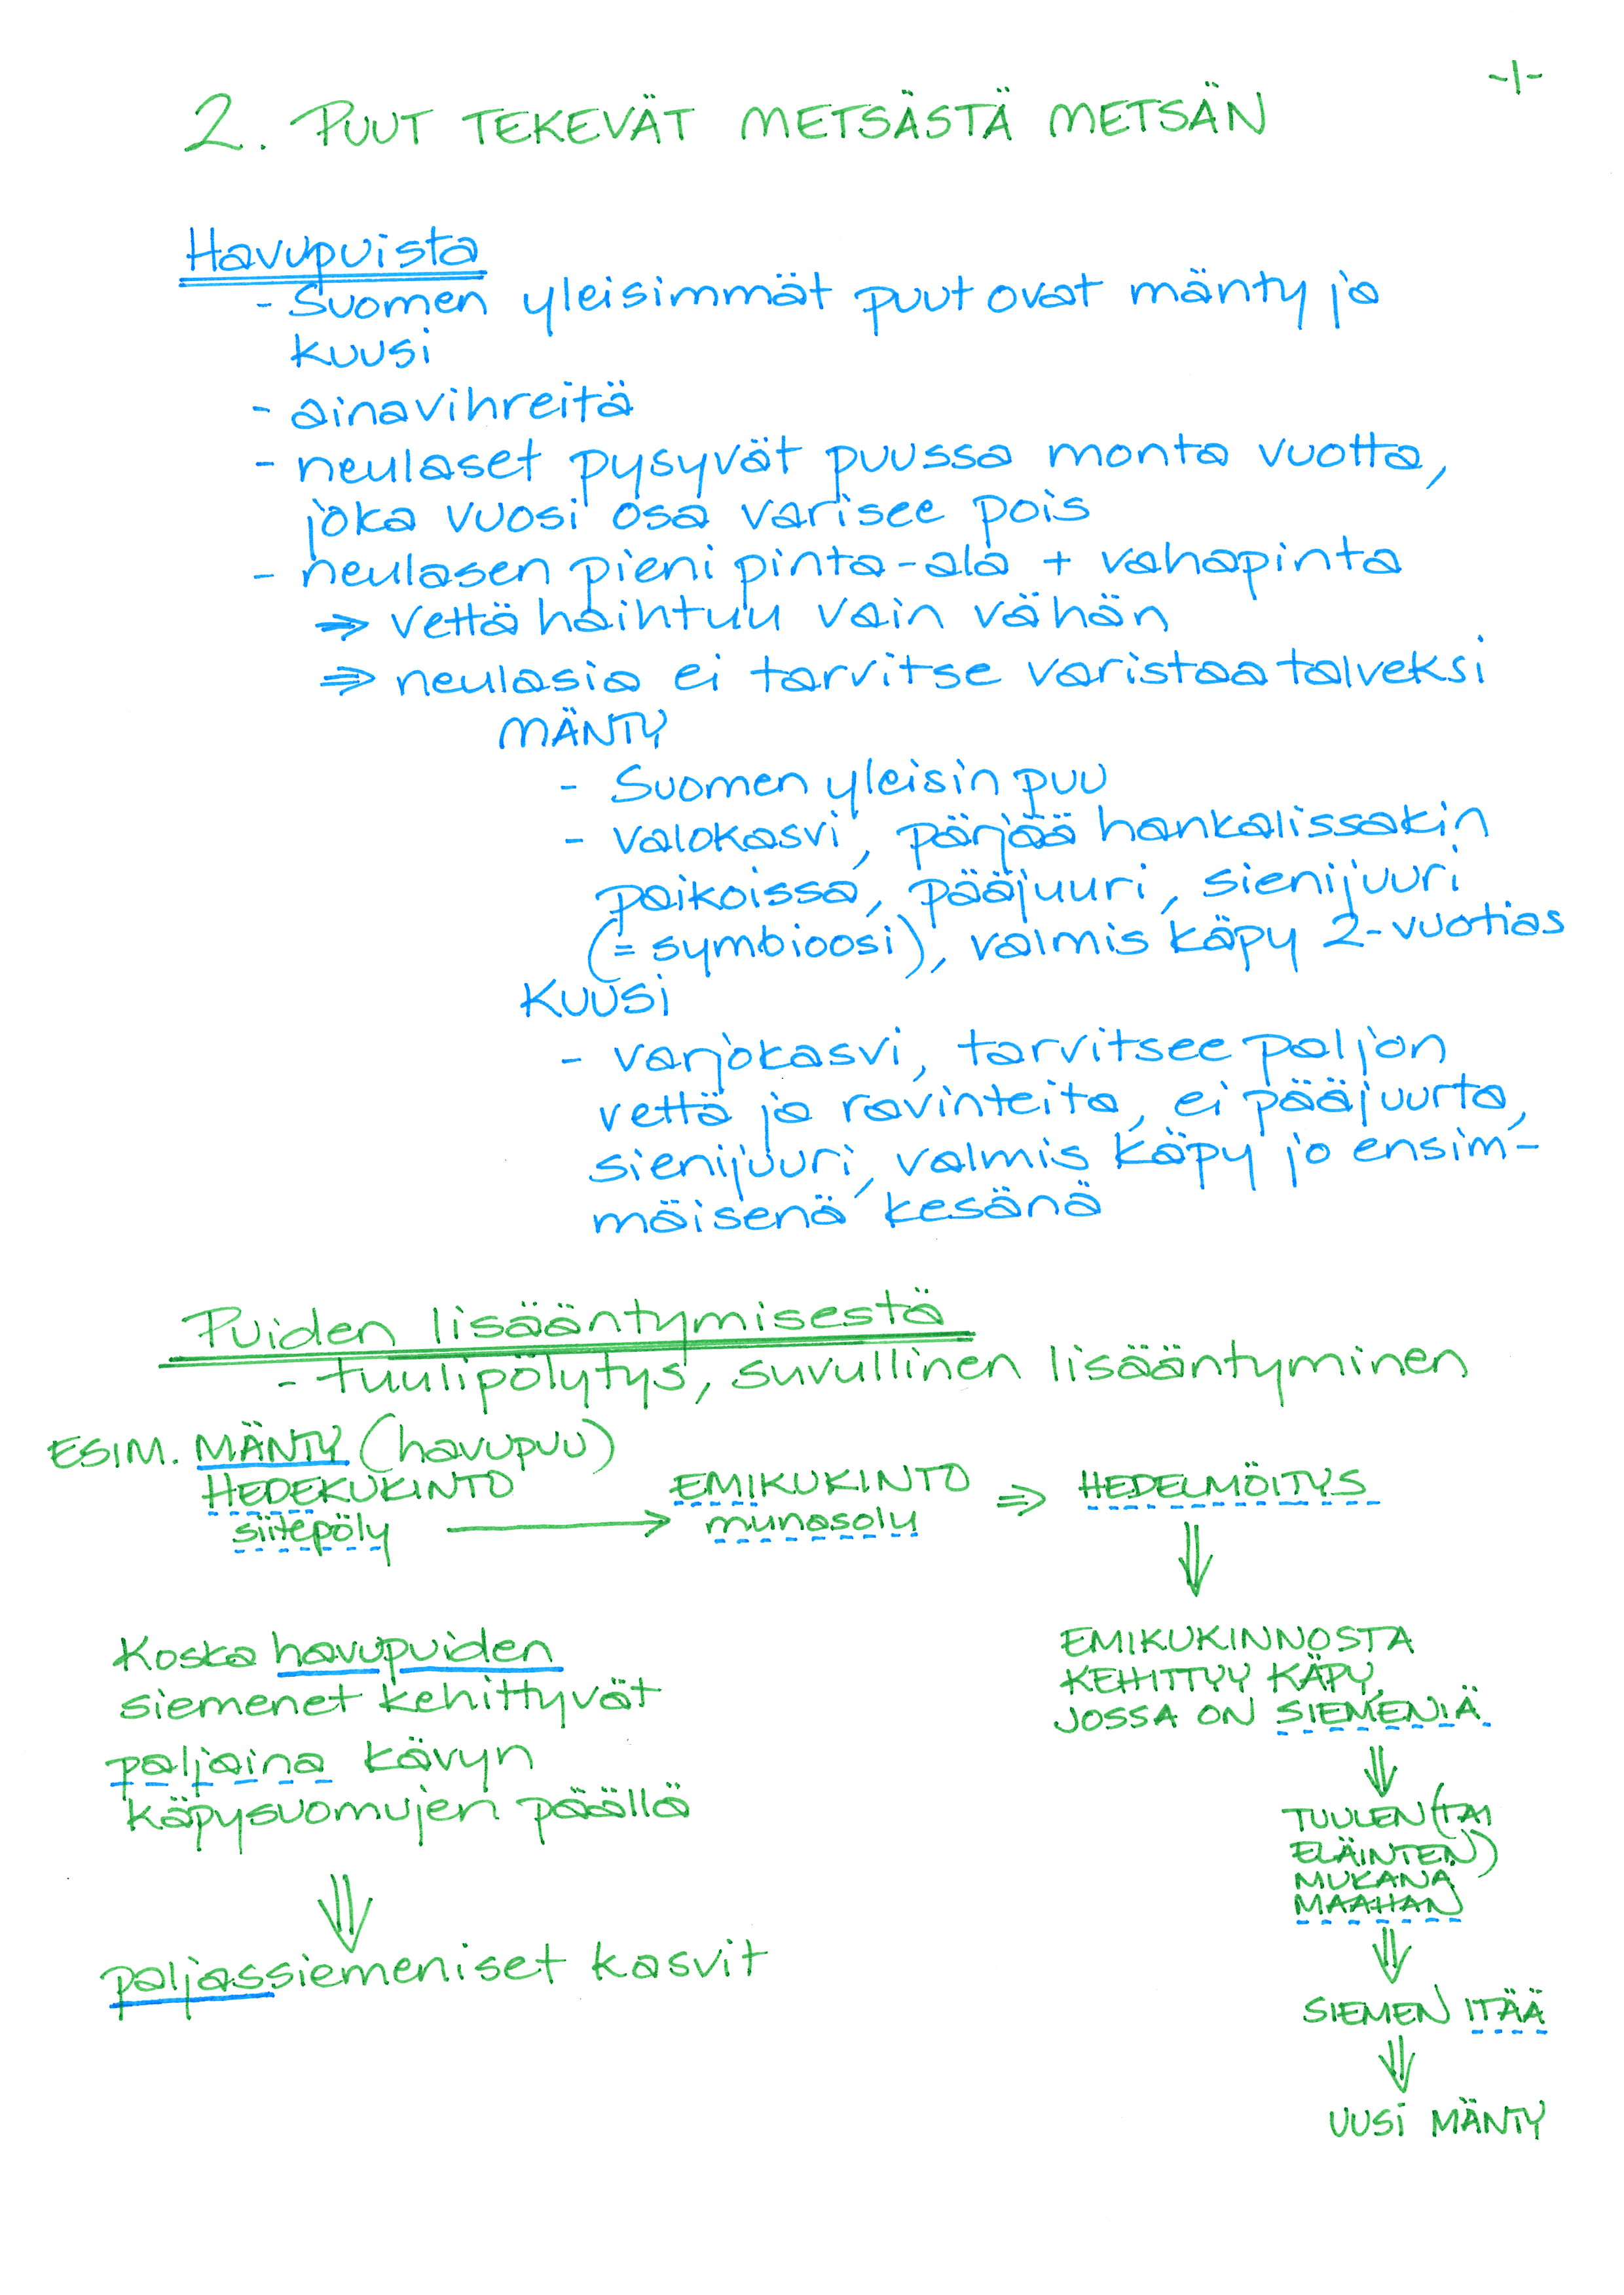 -1-
2. PUUT TEKEVÄT METSÄSTÄ METSÄN
Havupuista
- Suomen yleisimmät puut ovat mänty ja
kuusi
- ainavihreitä
- neulaset pysyvät puussa monta vuotta,
joka vuosi osa varisee pois
- neulasen pieni pinta-ala + vahapinta
⇒ vettä haihtuu vain vähän
⇒ neulasia ei tarvitse varistaa talveksi
MÄNTY
- Suomen yleisin puu
- valokasvi, pärjää hankalissakin
paikoissa, pääjuuri, sienijuuri
(= symbioosi), valmis käpy 2-vuotias
KUUSI
- varjokasvi, tarvitsee paljon
vettä ja ravinteita, ei pääjuurta,
sienijuuri, valmis käpy jo ensim-
mäisenä kesänä
Puiden lisääntymisestä
- tuulipölytys, suvullinen lisääntyminen
ESIM. MÄNTY (havupuu)
HEDEKUKINTO EMIKUKINTO ⇒ HEDELMÖITYS
siitepöly → munasolu
⇓
EMIKUKINNOSTA
KEHITTYY KÄPY,
JOSSA ON SIEMENIÄ
⇓
TUULEN (TAI
ELÄINTEN)
MUKANA
MAAHAN
⇓
SIEMEN ITÄÄ
⇓
UUSI MÄNTY
Koska havupuiden
siemenet kehittyvät
paljaina kävyn
käpysuomujen päällä
⇓
paljassiemeniset kasvit